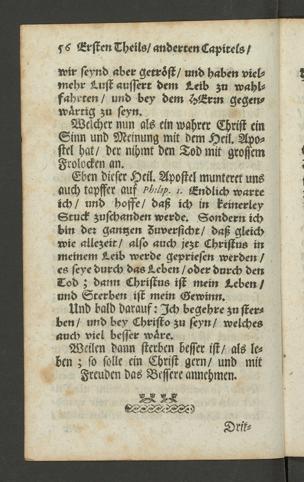 56 Ersten Theils/ anderten Capitels/
wir seynd aber getröst/ und haben viel-
mehr Lust aussert dem Leib zu wahl-
fahrten/ und bey dem HErrn gegen-
wärtig zu seyn.
Welcher nun als ein wahrer Christ ein
Sinn und Meinung mit dem Heil. Apo-
stel hat/ der nihmt den Tod mit grossem
Frolocken an.
Eben dieser Heil. Apostel muntert uns
auch tapffer auf Philip. 1. Endlich warte
ich/ und hoffe/ daß ich in keinerley
Stuck zuschanden werde. Sondern ich
bin der ganzen Zuversicht/ daß gleich
wie allezeit/ also auch jezt Christus in
meinem Leib werde gepriesen werden/
es seye durch das Leben/ oder durch den
Tod; dann Christus ist mein Leben/
und Sterben ist mein Gewinn.
Und bald darauf: Ich begehre zu ster-
ben/ und bey Christo zu seyn/ welches
auch viel besser wäre.
Weilen dann sterben besser ist/ als le-
ben; so solle ein Christ gern/ und mit
Freuden das Bessere annehmen.
Drit-